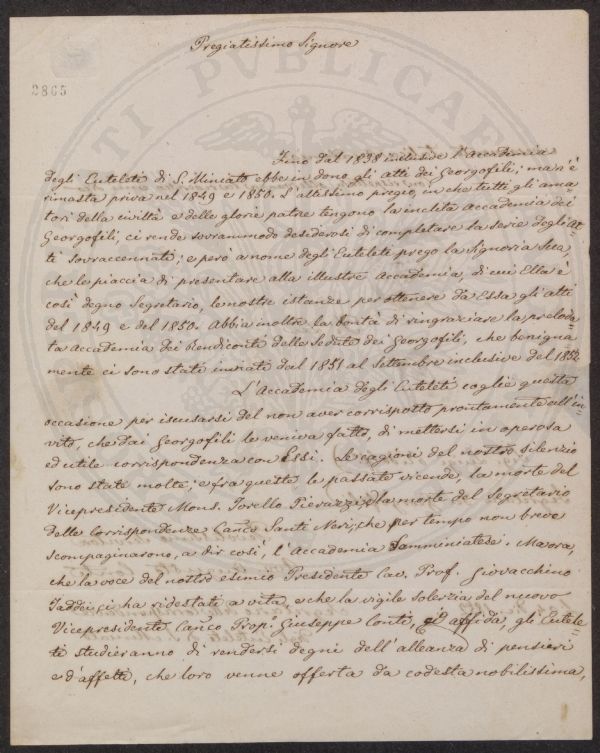 Pregiatissimo Signore
2865
Fino dal 1838 inclusive l'Accademia
degli Euteleti di S. Miniato ebbe in dono gli atti dei Georgofili; ma n'è
rimasta priva nel 1849 e 1850. L'altissimo pregio, in che tutti gli ama-
tori della civiltà e delle glorie patrie tengono la inclita Accademia dei
Georgofili, ci rende sovrammodo desiderosi di completare la serie degli At-
ti sovraccennati; e però a nome degli Euteleti prego la Signoria Sua
che le piaccia di presentare alla illustre Accademia, di cui Ella è
così degno Segretario, le nostre istanze per ottenere da Essa gli atti
del 1849 e del 1850. Abbia inoltre la bontà di ringraziare la preloda-
ta Accademia dei Rendiconti delle Sedute dei Georgofili, che benigna-
mente ci sono stati inviati dal 1851 al Settembre inclusive del 1852.
L'Accademia degli Euteleti coglie questa
occasione per iscusarsi del non aver corrisposto prontamente all'in-
vito, che dai Georgofili le veniva fatto, di mettersi in operosa
ed utile corrispondenza con Essi. Le cagioni del nostro silenzio
sono state molte; e fra queste le passate vicende, la morte del
Vicepresidente Mons. Torello Pierazzi, e la morte del Segretario
delle Corrispondenze Can.co Santi Neri, che per tempo non breve
scompaginarono, a dir così, l'Accademia Samminiatese. Ma ora,
che la voce del nostro esimio Presidente Cav. Prof. Giovacchino
Taddei ci ha ridestati a vita, e che la vigile solerzia del nuovo
Vicepresidente Can.co Prop.o Giuseppe Conti, ci affida, gli Eutele-
ti studieranno di rendersi degni dell'alleanza di pensieri
e d'affetti, che loro venne offerta da codesta nobilissima,
PUBLICAE